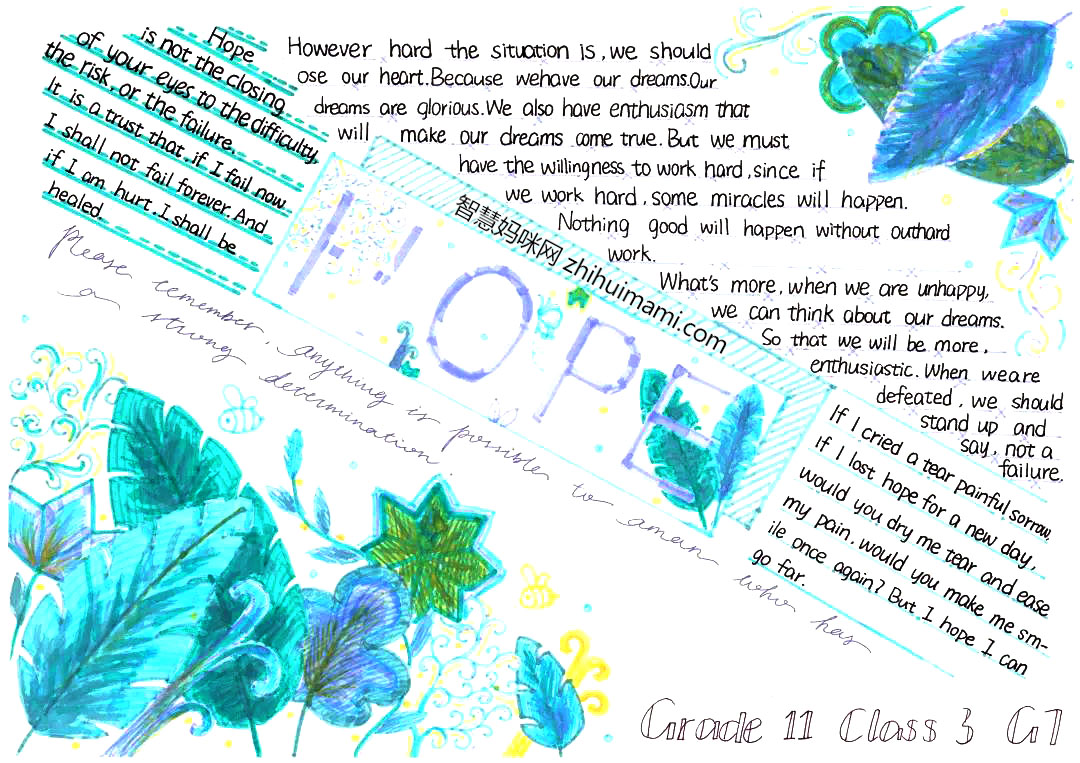 Hope
is not the closing
of your eyes to the difficulty
the risk, or the failure.
It is a trust that. if I fail now.
I shall not fail forever. And
if I am hurt. I shall be
healed.
However hard the situation is, we should
ose our heart. Because wehave our dreams. Our
dreams are glorious. We also have enthusiasm that
will make our dreams come true. But we must
have the willingness to work hard, since if
we work hard, some miracles will happen.
Nothing good will happen without outhard
work.
What's more, when we are unhappy,
we can think about our dreams.
So that we will be more,
enthusiastic. When weare
defeated, we should
stand up and
say, not a
failure.
智慧妈咪网 zhihuimami.com
HOPE
Please remember, anything is possible to aman who has
a strong determination.
If I cried a tear painful sorrow.
if I lost hope for a new day,
would you dry me tear and ease
my pain. would you make me sm-
ile once again? But, I hope I can
go far.
Grade 11 Class 3 G7